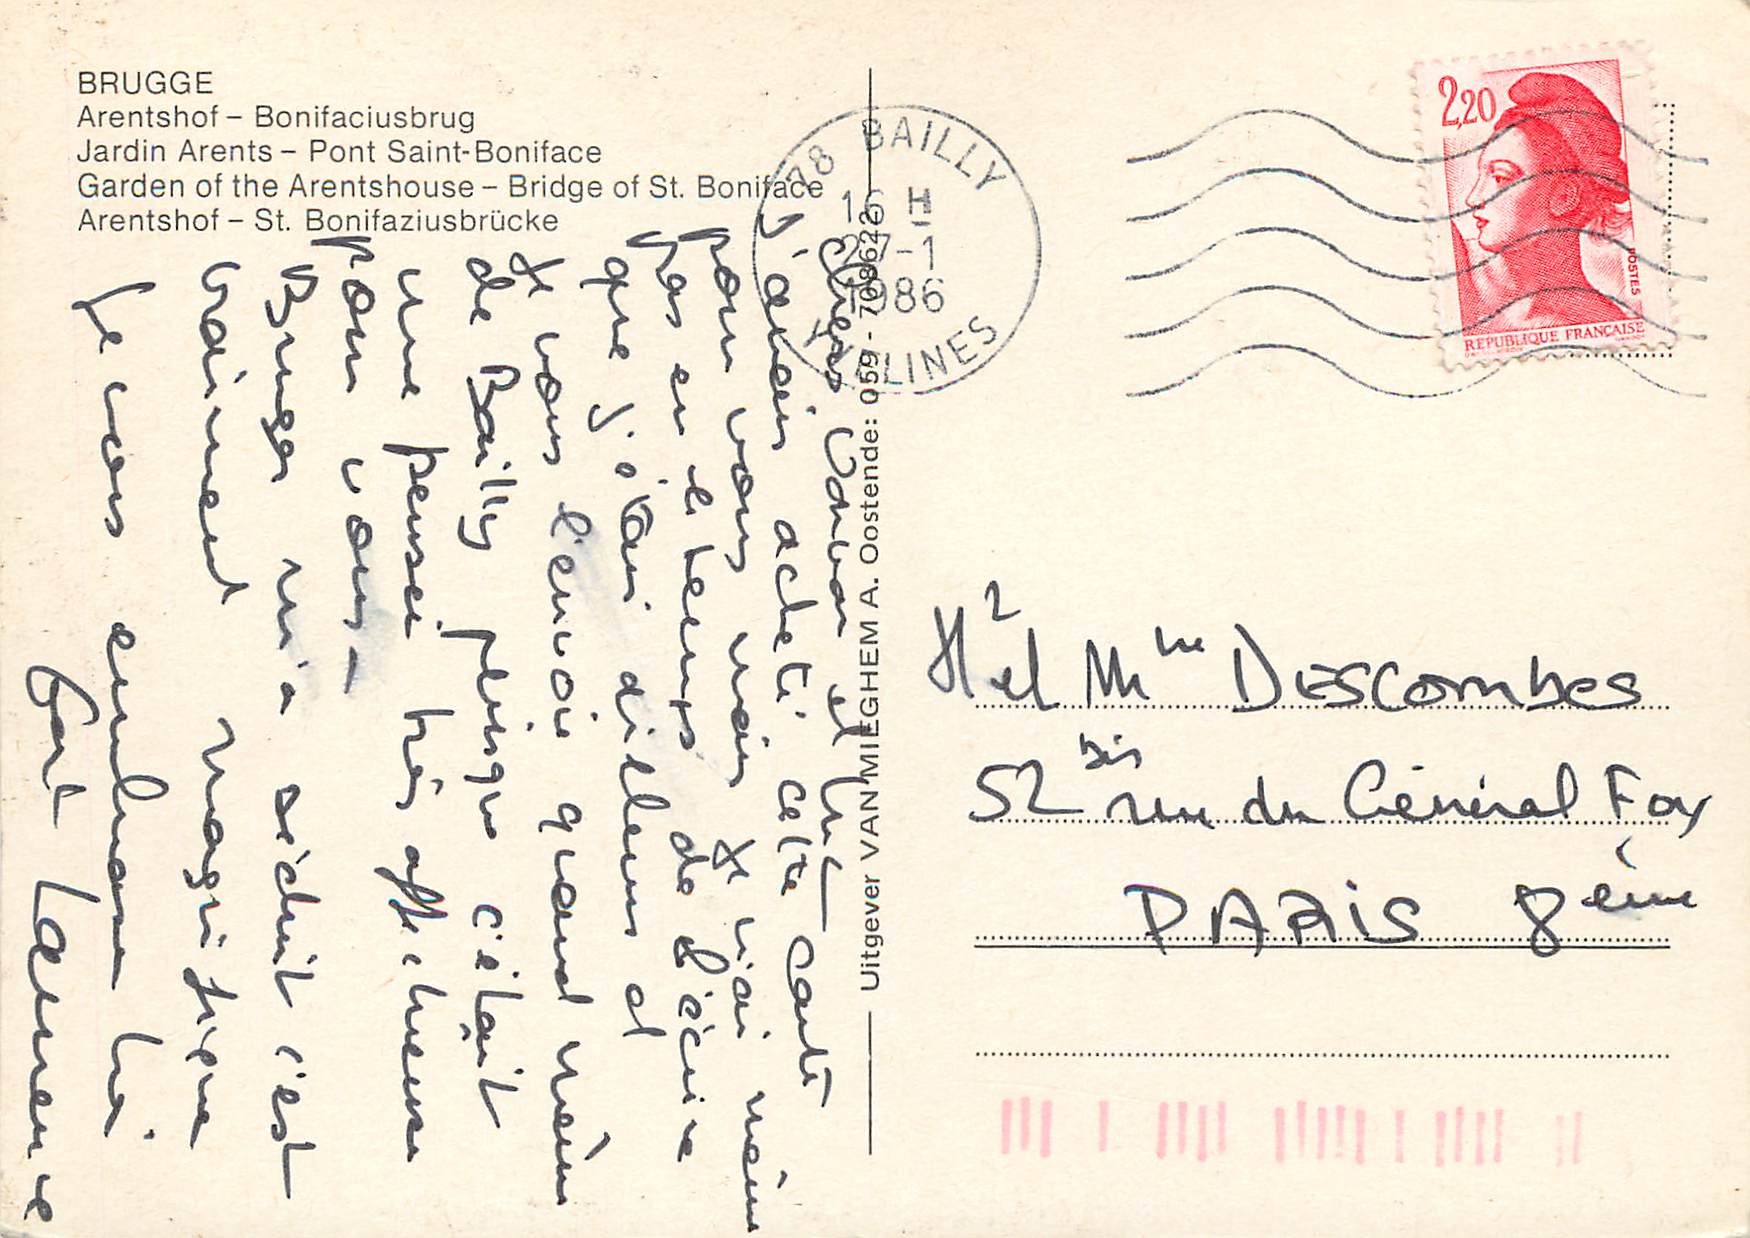 BRUGGE
Arentshof – Bonifaciusbrug
Jardin Arents – Pont Saint-Boniface
Garden of the Arentshouse – Bridge of St. Boniface
Arentshof – St. Bonifaziusbrücke
78 BAILLY
16 H
27-1
1986
YVELINES
2,20
POSTES
REPUBLIQUE FRANÇAISE
Uitgever VAN MIEGHEM A. Oostende: 059 - 708622
Chers et
j'avais acheté cette carte
pour vous mais je n'ai même
pas eu le temps de l'écrire
que j'étais ailleurs et
je vous l'envoie quand même
de Bailly puisque c'était
une pensée très affectueuse
pour vous –
Bruges m'a séduit c'est
vraiment magnifique
Je vous embrasse
fort Laurence
Mme DESCOMBES
52 bis rue du Général Foy
PARIS 8ème